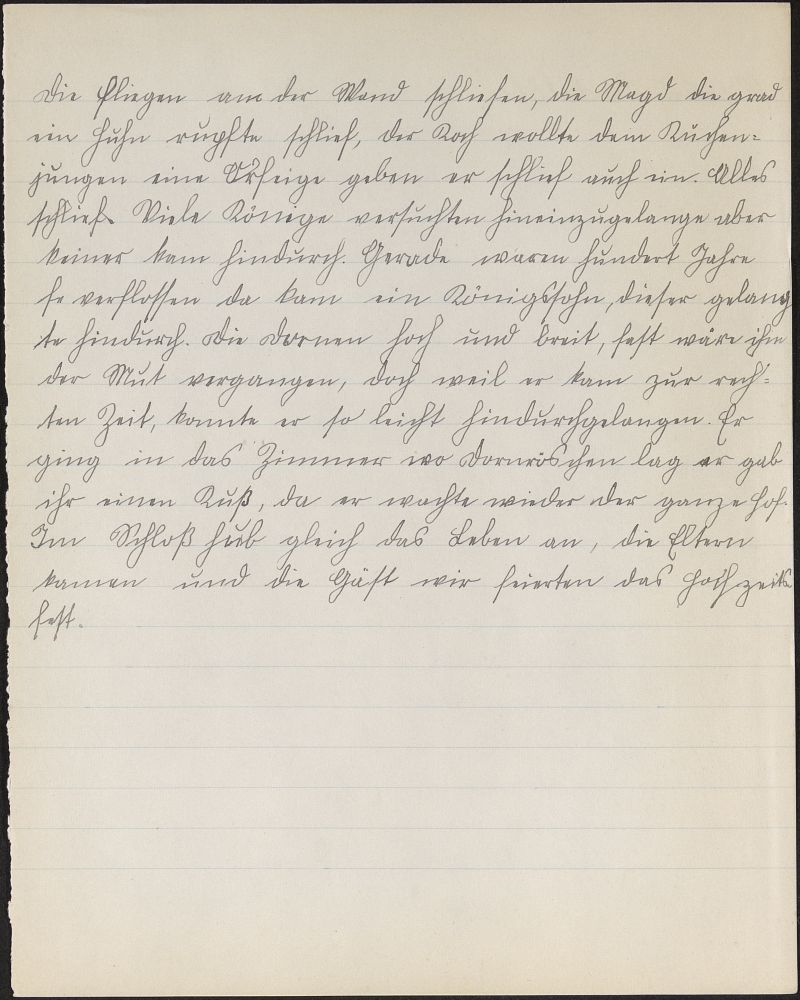 Die Fliegen an der Wand schliefen, die Magd die grad
ein Huhn rupfte schlief, der Koch wollte dem Kuchen-
jungen eine Orfeige geben er schlief auch ein. Alles
schlief. Viele Könige versuchten hineinzugelange aber
keiner kam hindurch. Gerade waren hundert Jahre
fe verflossen da kam ein Königssohn, dieser gelang
te hindurch. Die Dornen hoch und breit, fast wäre ihm
der Mut vergangen, doch weil er kam zur rech-
ten Zeit, konnte er so leicht hindurchgelangen. Er
ging in das Zimmer wo Dornröschen lag er gab
ihr einen Kuß, da er wachte wieder der ganze Hof.
Im Schloß hub gleich das Leben an, die Eltern
kamen und die Gäst wir feierten das Hochzeits
fest.